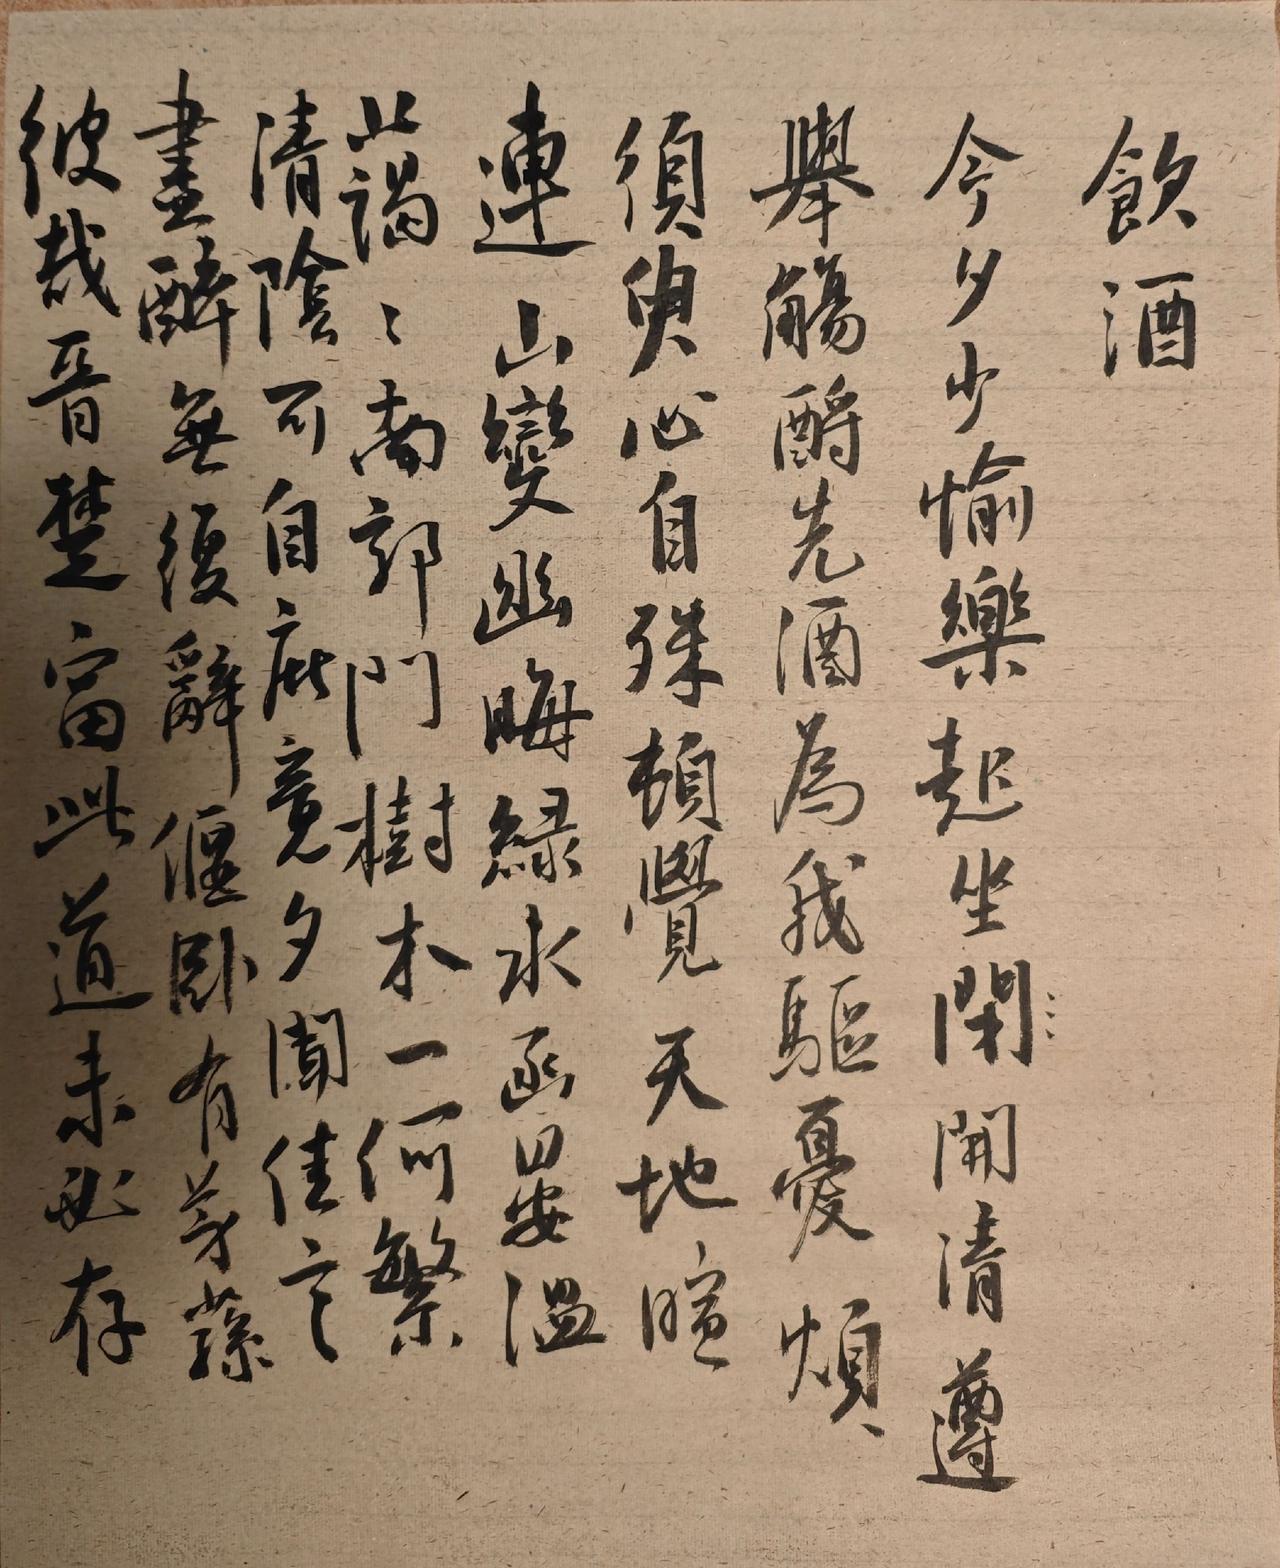 飲酒
今夕少愉樂起坐閑開清遵
舉觴酹先酒為我驅憂煩
須臾心自殊頓覺天地暄
連山變幽晦綠水函晏溫
藹〻南郭門樹木一何繁
清陰可自庇竟夕聞佳言
盡醉無復辭偃臥有芳蓀
彼哉晉楚富此道未必存